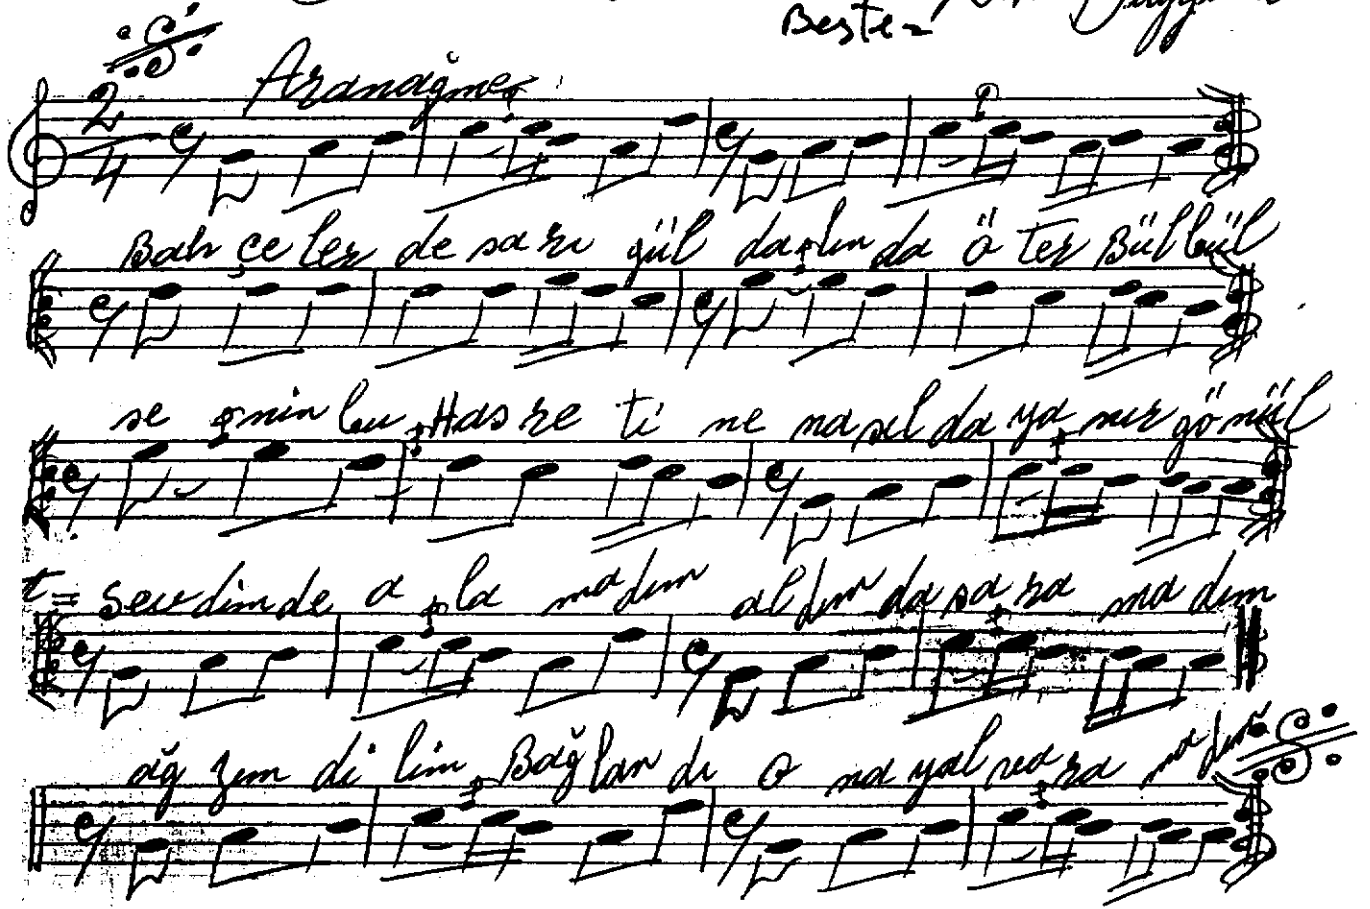 Beste =
2
4
Aranağme
Bah çe ler de sa rı gül da lın da ö ter Bül bül
se nin bu Has re ti ne na sıl da ya nır gö nül
sev dim de a la ma dım al dım da sa ra ma dım
ağ zım di lim Bağ lan dı o na yal va ra ma dım